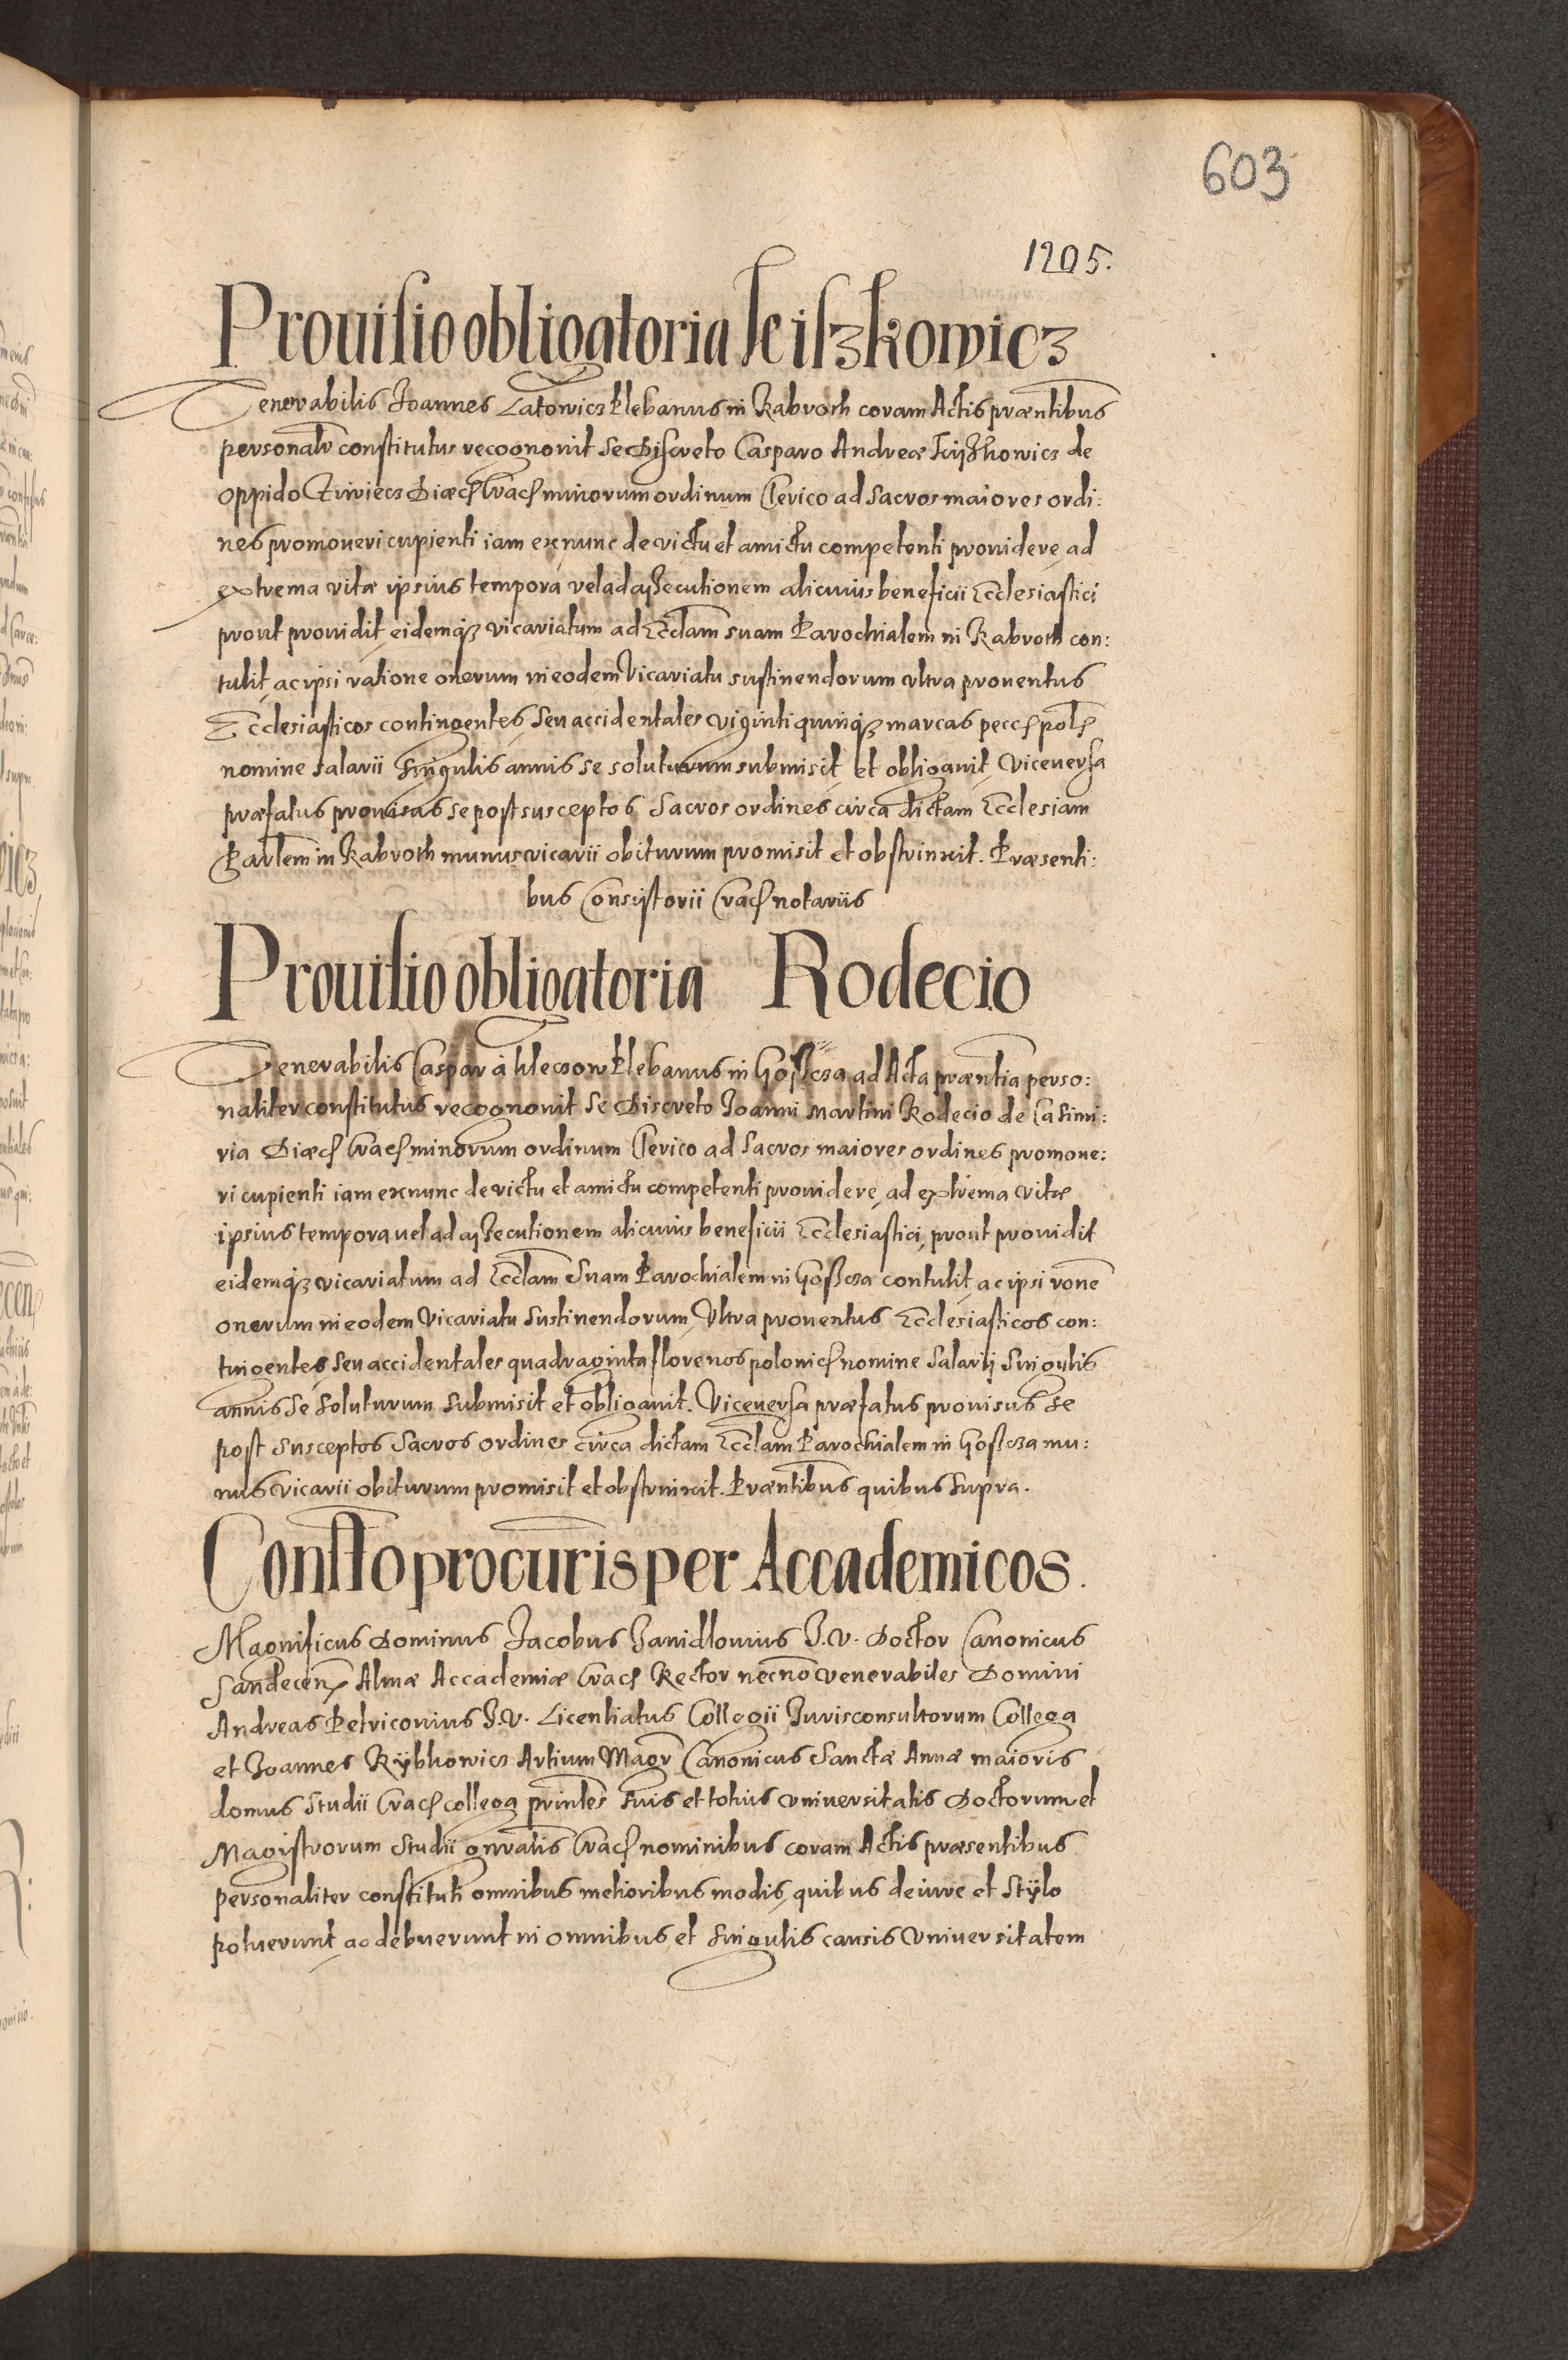 603
1205.
Prouisio obligatoria Feiszkowicz
Venerabilis Joannes Latowicz Plebanus in Kabroth coram Actis præntibus
personalr constitutus recognouit Se Discreto Casparo Andreæ Feijzkowicz de
oppido Ziwiecz Diæc Crac minorum ordinum Clerico ad Sacros maiores ordi:
nes promoueri cupienti iam ex nunc de victu et amictu competenti prouidere, ad
extrema vitæ ipsius tempora vel ad assecutionem alicuius beneficii Ecclesiastici
prout prouidit, eidemq3 vicariatum ad Eccłam suam Parochialem in Kabroth con:
tulit, ac ipsi ratione onerum in eodem Vicariatu sustinendorum vltra prouentus
Ecclesiasticos contingentes, Seu accidentales viginti quinq3 marcas pecc pol
nomine Salarii Singulis annis se soluturum submisit, et obligauit, Viceuersa
præfatus prouisus se post susceptos Sacros ordines circa dictam Ecclesiam
Parlem in Kabroth munus vicarii obiturum promisit et obstrinxit. Præsenti:
bus Consistorii Crac notariis
Prouisio obligatoria Rodecio
Venerabilis Caspar à Kleczow Plebanus in Goszcza ad Acta præntia perso:
naliter constitutus recognouit Se Discreto Joanni Martini Rodecio de Casimi:
ria Diæc Crac minorum ordinum Clerico ad Sacros maiores ordines promoue:
ri cupienti iam ex nunc de victu et amictu competenti prouidere, ad extrema vitæ
ipsius tempora uel ad assecutionem alicuius beneficii Ecclesiastici, prout prouidit
eidemq3 vicariatum ad Eccłam Suam Parochialem in Goszcza contulit, ac ipsi rone
onerum in eodem Vicariatu Sustinendorum, Vltra prouentus Ecclesiasticos con:
tingentes, Seu accidentales quadraginta florenos polonic nomine Salarij Singulis
annis Se Soluturum Submisit et obligauit. Viceuersa præfatus prouisus Se
post Susceptos Sacros ordines circa dictam Eccłam Parochialem in Goszcza mu:
nus Vicarii obiturum promisit et obstrinxit. Præntibus quibus Supra.
Constto procuris per Accademicos.
Magnificus Dominus Jacobus Janidlouius J.V. Doctor Canonicus
Sandecen Almæ Accademiæ Crac Rector necno venerabiles Domini
Andreas Petriconius J.V. Licentiatus Collegii Jurisconsultorum Collega
et Joannes Rÿbkowicz Artium Magr Canonicus Sanctæ Annæ maioris
domus Studii Crac collega printes Suis et totius Vniuersitatis Doctorum et
Magistrorum Studii gnralis Crac nominibus coram Actis præsentibus
personaliter constituti omnibus melioribus modis, quibus de iure et Stÿlo
potuerunt ac debuerunt in omnibus et Singulis causis Vniuersitatem